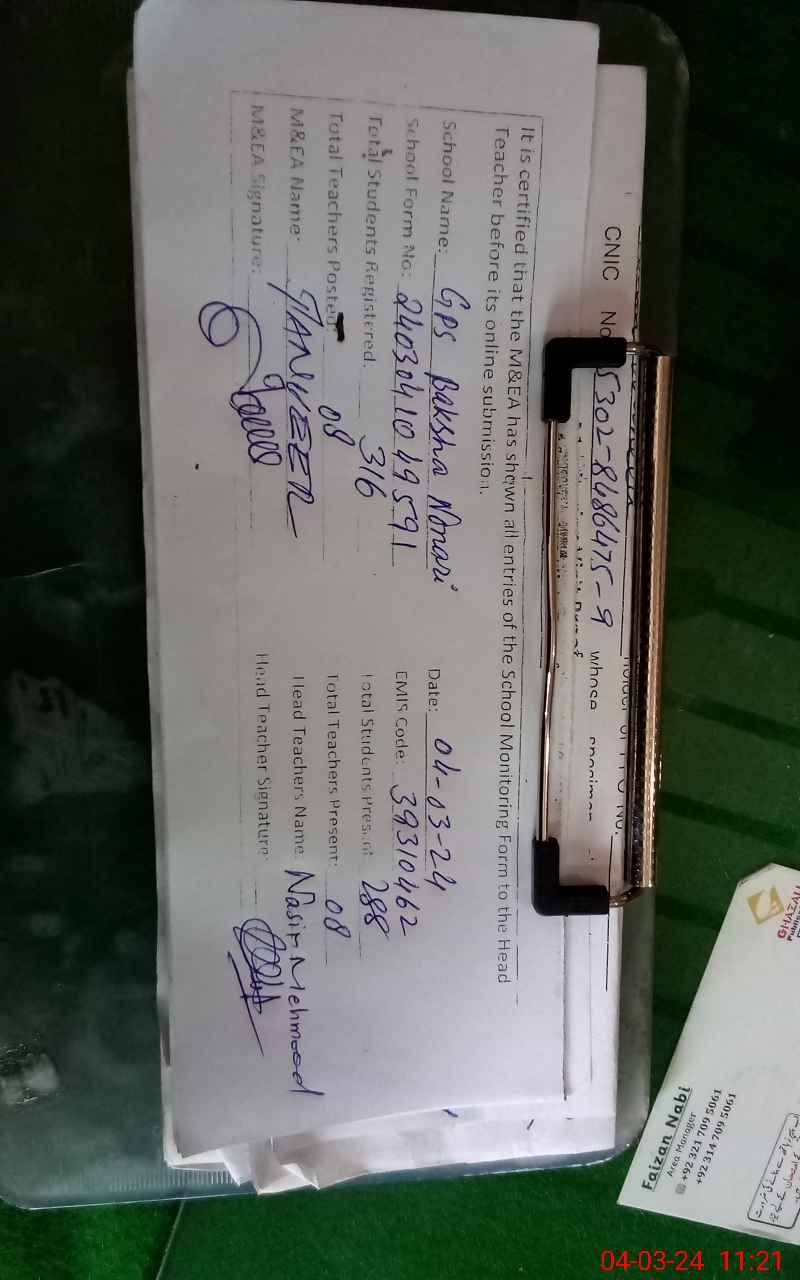 CNIC No. 5302-8486475-9 whose specimen
It is certified that the M&EA has shown all entries of the School Monitoring Form to the Head
Teacher before its online submission.
School Name: GPS Baksha Nonari Date: 04-03-24
School Form No: 24030410 49591 EMIS Code: 39310462
Total Students Registered: 316 Total Students Present: 288
Total Teachers Posted: 08 Total Teachers Present: 08
M&EA Name: TANVEER Head Teachers Name: Nasir Mehmood
M&EA Signature: Head Teacher Signature:
GHAZALI
Faizan Nabi
Area Manager
+92 321 709 5061
+92 314 709 5061
04-03-24 11:21